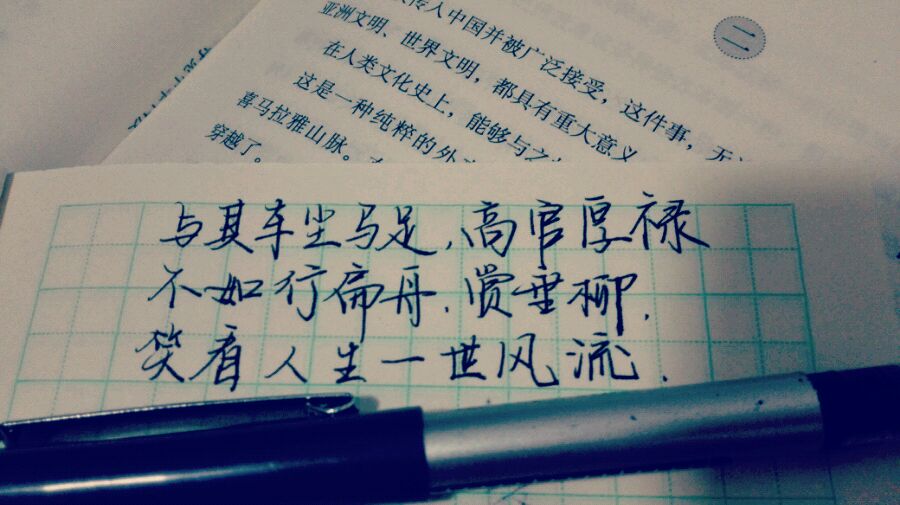 二
传入中国并被广泛接受，这件事，无
亚洲文明、世界文明，都具有重大意义
在人类文化史上，能够与之
这是一种纯粹的外
喜马拉雅山脉。
穿越了。
与其车尘马足,高官厚禄
不如行扁舟,赏垂柳,
笑看人生一世风流.